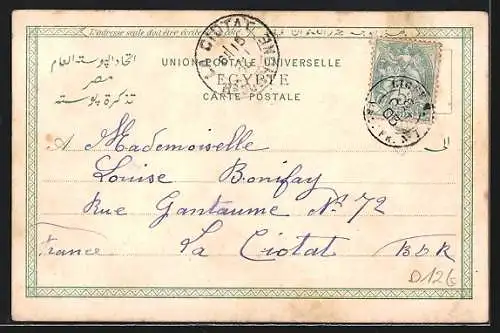 L'adresse seule doit être écrite
LA CIOTAT
UNION POSTALE UNIVERSELLE
EGYPTE
CARTE POSTALE
اتحاد البوستة العام
مصر
تذكرة بوسته
A Mademoiselle
الى
Louise Bonifay
Rue Gantaume Nº 72
La Ciotat BDR
France
D126